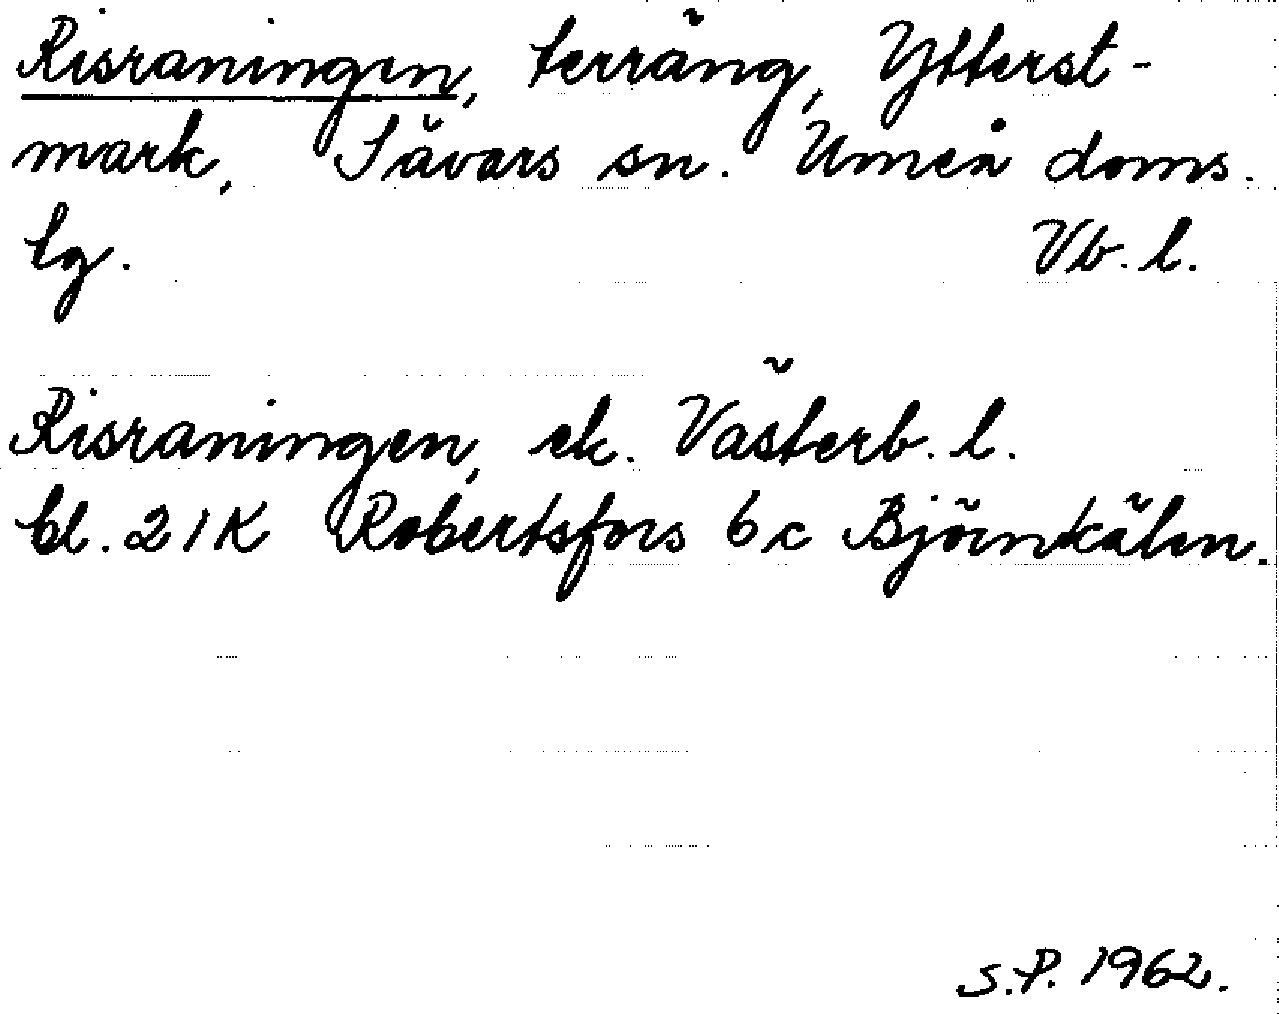 Risraningen, terräng, Ytterst-
mark, Sävars sn. Umeå doms.
lg. Vb. l.
Risraningen, ek. Västerb. l.
bl. 21K Robertsfors 6 c Björnkälen.
S.P. 1962.